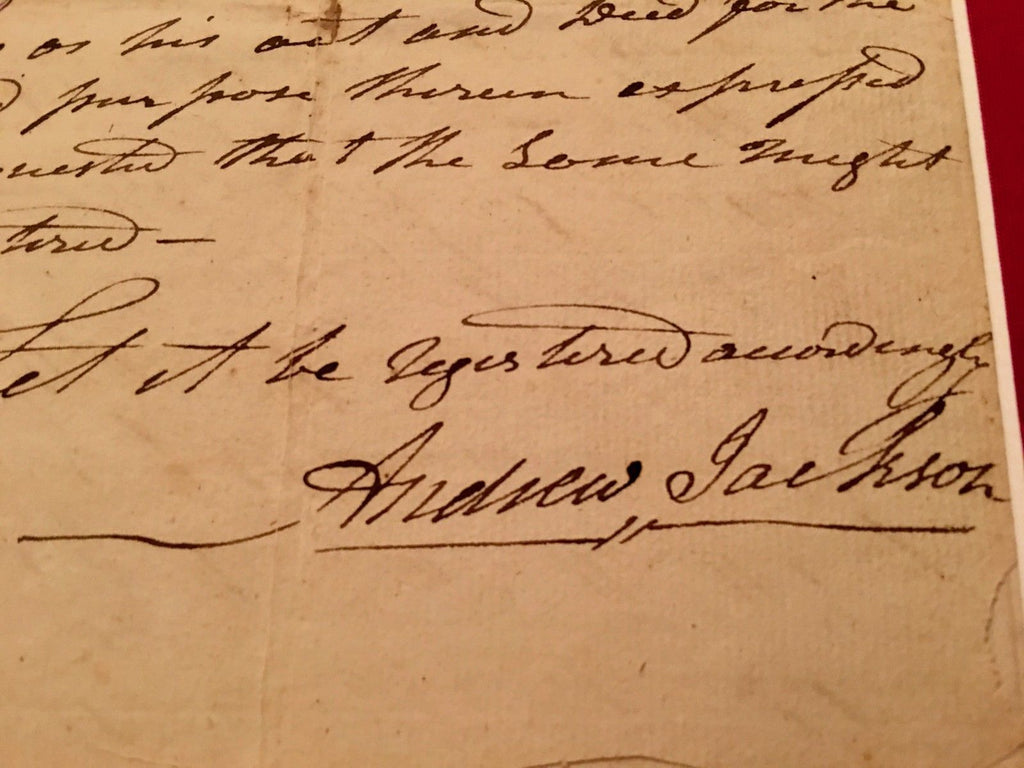 as his act and Deed for the
purpose therein expressed
that the Same might
tered —
Let it be registered accordingly
Andrew Jackson